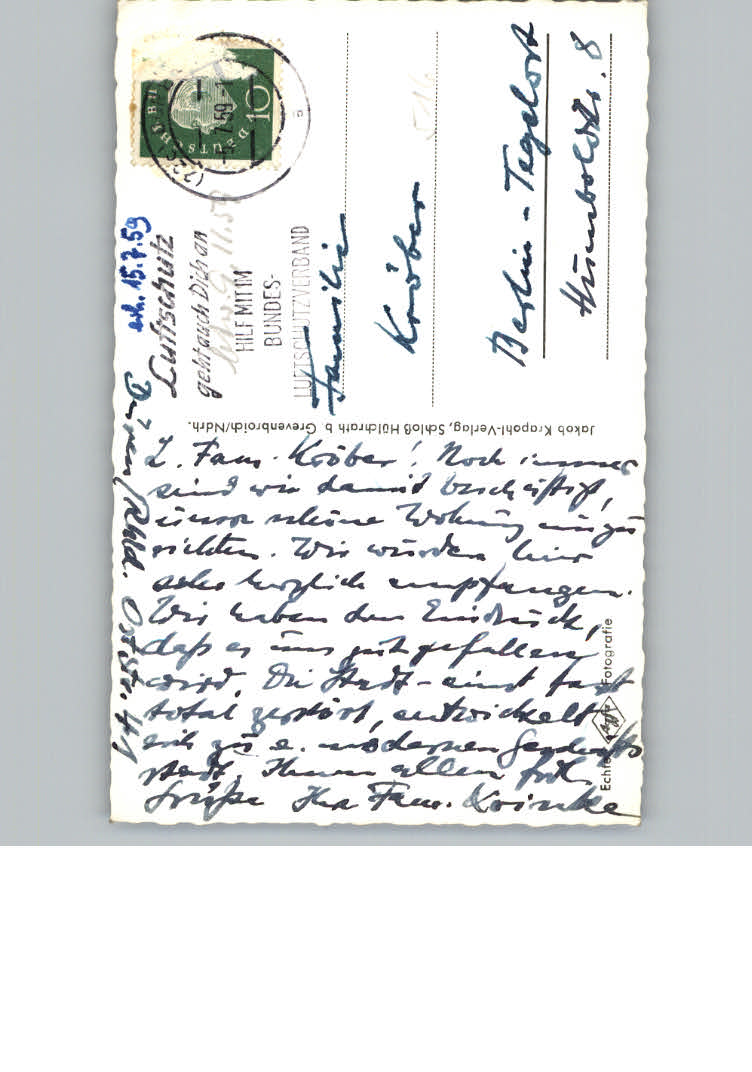 erh. 15.7.59
Düren/Rhld. Oststr. 41
L. Fam. Kröber! Noch immer
sind wir damit beschäftigt,
unsere schöne Wohnung einzu
richten. Wir wurden hier
sehr herzlich empfangen.
Wir haben den Eindruck,
daß es uns gut gefallen
wird. Die Stadt – einst fast
total zerstört, entwickelt
sich zu e. modernen
stadt. Ihnen allen
Grüße Ihre Fam.
DEUTSCHE BU
10
7.59-1
Luftschutz
geht auch Dich an
HILF MIT IM
BUNDES-
LUFTSCHUTZVERBAND
11.59
Familie
Kröber
Berlin - Tegelort
Humboldtstr. 8
Jakob Krapohl-Verlag, Schloß Hülchrath b. Grevenbroich/Ndrh.
Echte Agfa Fotografie